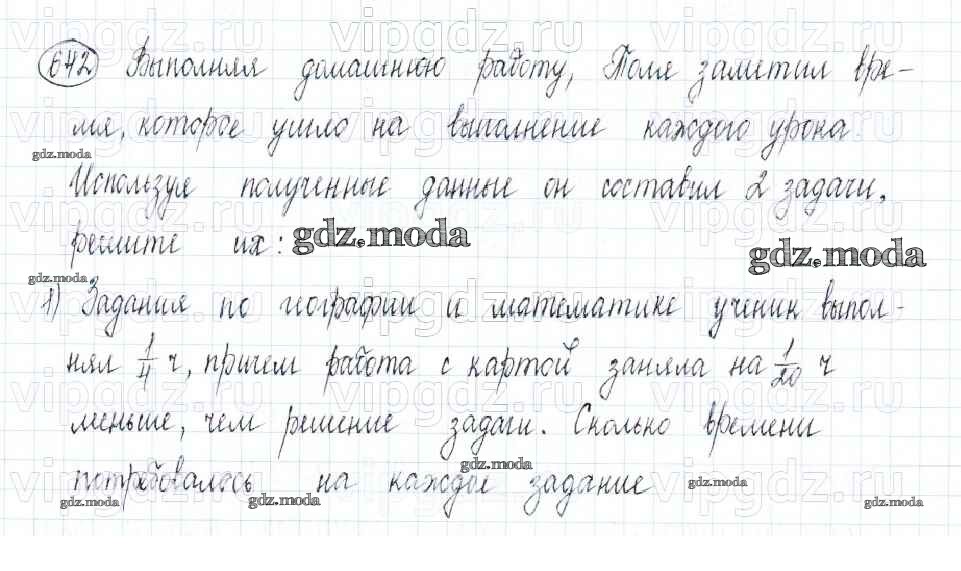 642 Выполняя домашнюю работу, Толя заметил вре-
мя, которое ушло на выполнение каждого урока.
gdz.moda
Используя полученные данные он составил 2 задачи,
решите их: gdz.moda
gdz.moda
gdz.moda
1) Задания по географии и математике ученик выпол-
нял 1/4 ч, причем работа с картой заняла на 1/20 ч
меньше, чем решение задачи. Сколько времени
gdz.moda
потребовалось на каждое задание
gdz.moda gdz.moda gdz.moda gdz.moda
vipgdz.ru vipgdz.ru vipgdz.ru